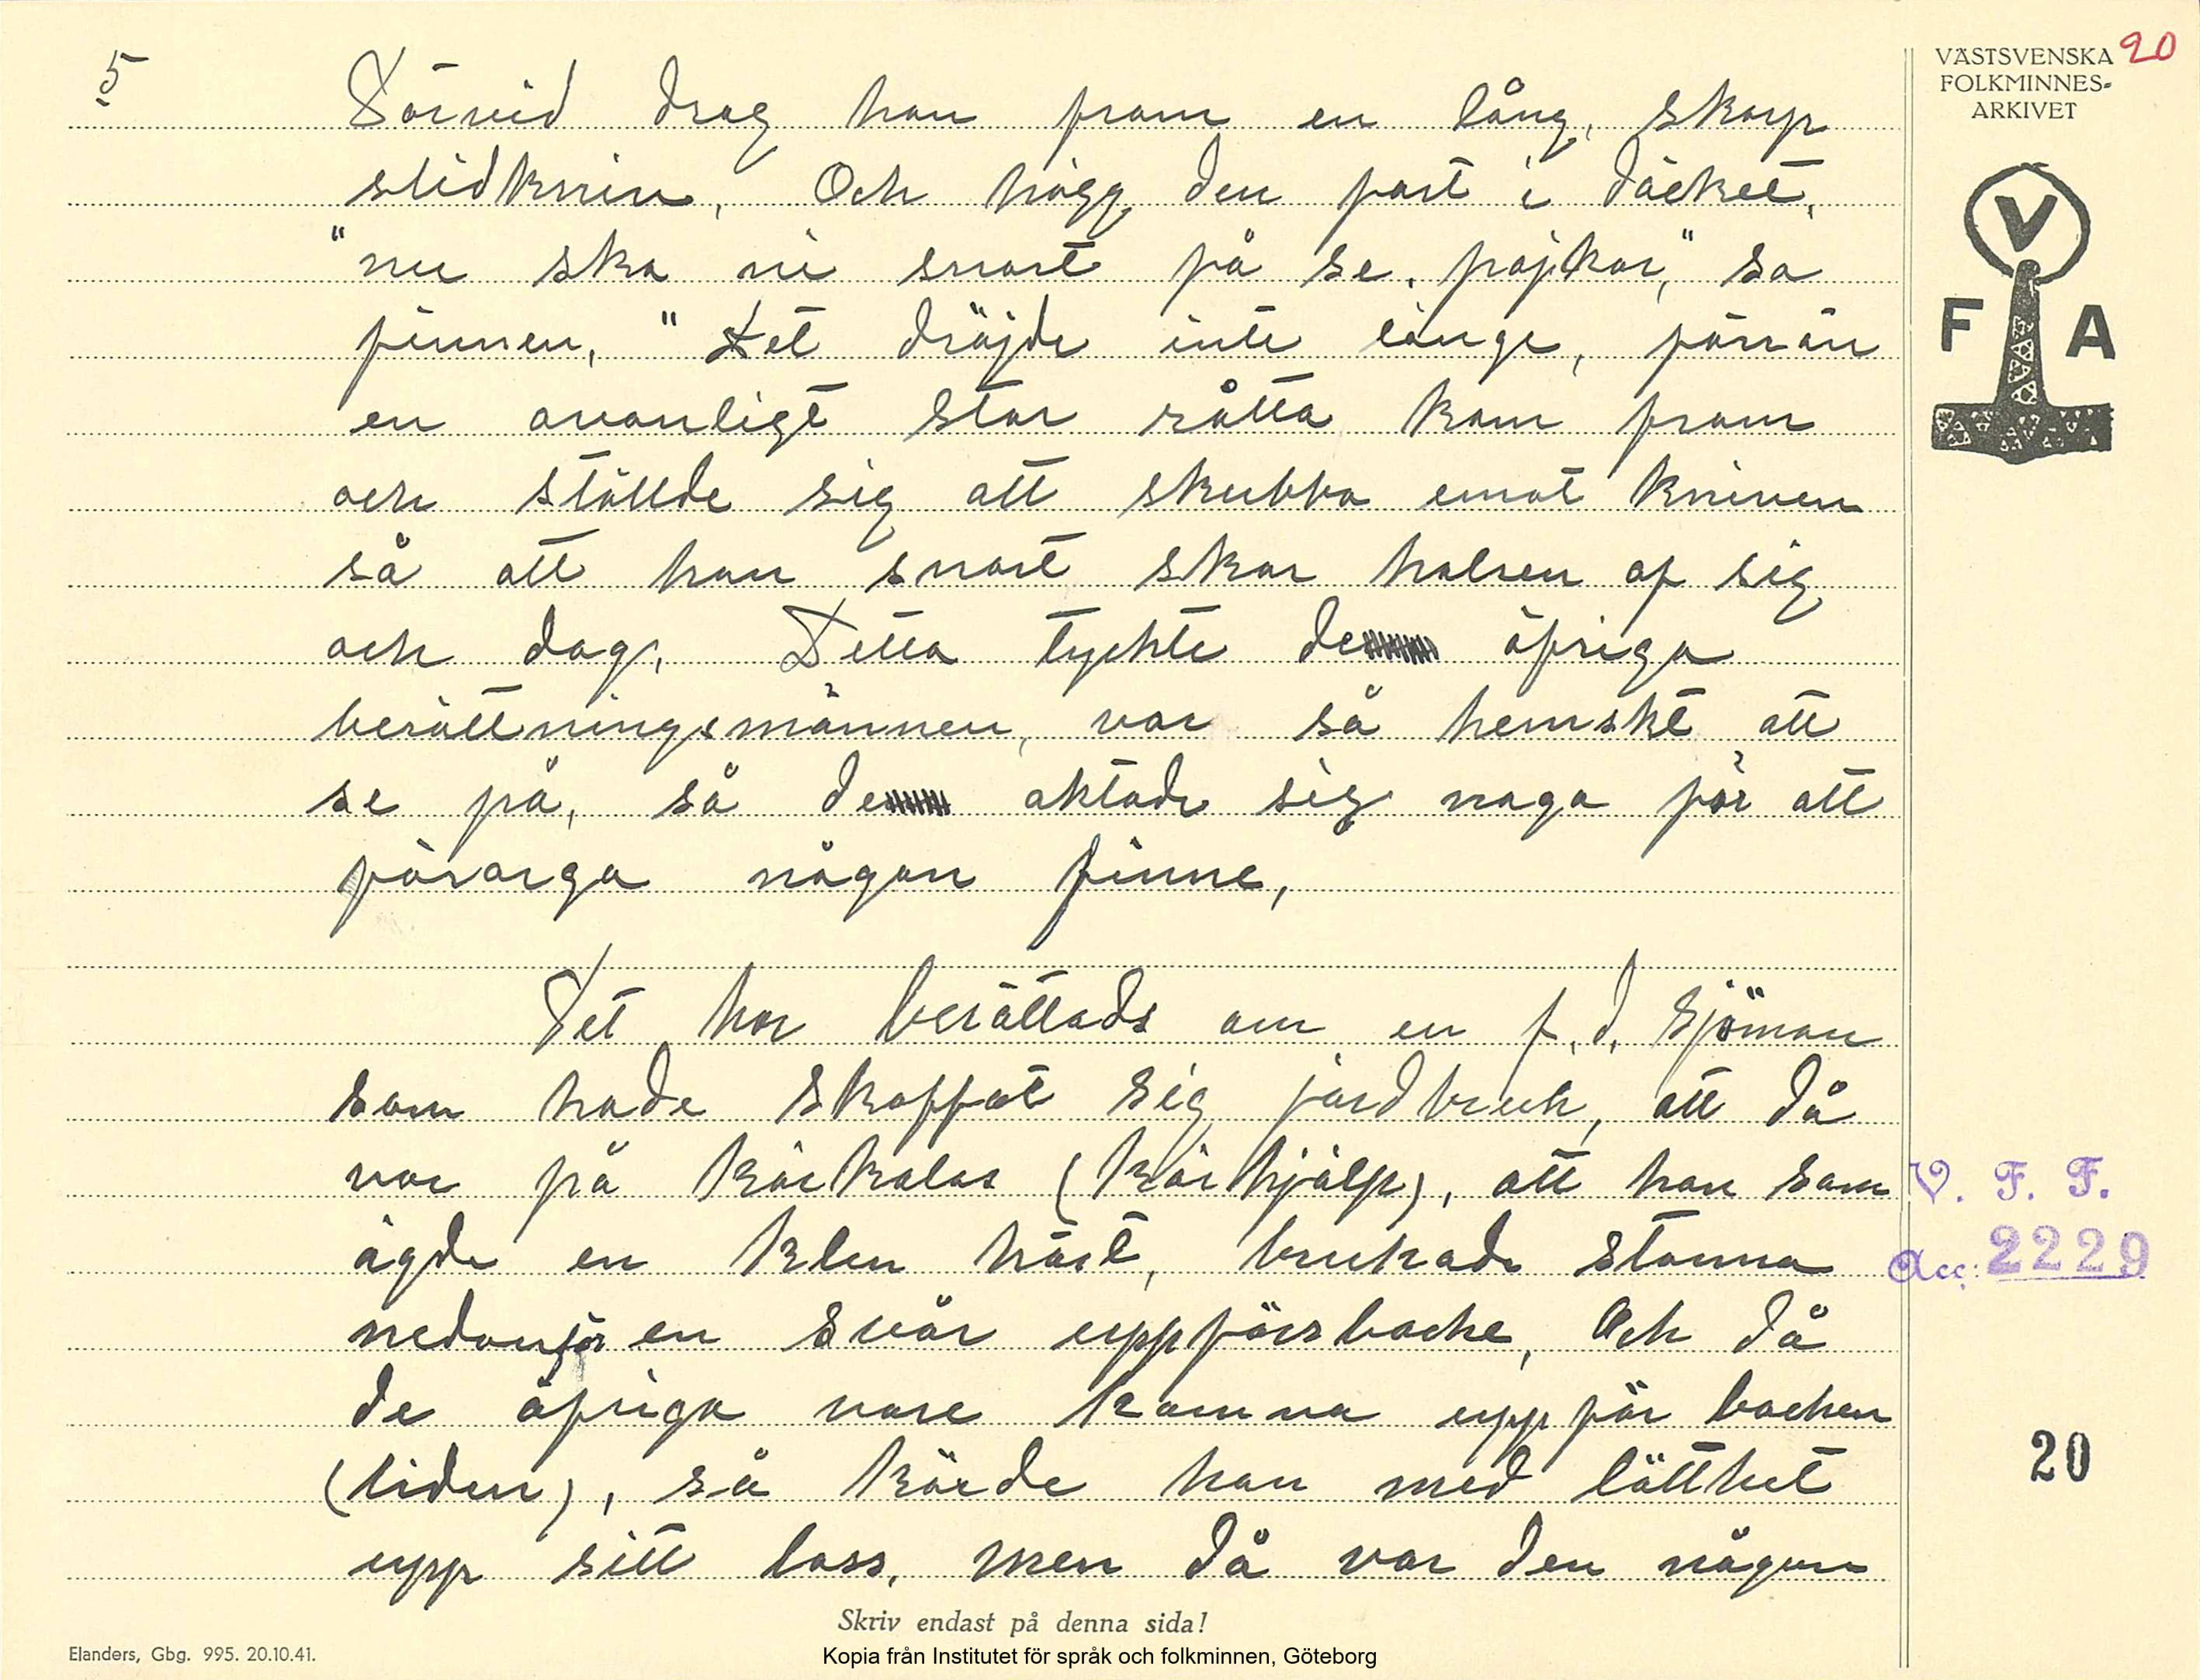 5
20
VÄSTSVENSKA
FOLKMINNES-
ARKIVET
V
F A
Därvid drog han fram en lång, skarp
slidkniv, Och högg den fast i däcket,
"nu ska ni snart få se, pojkar," sa
finnen, " Det dröjde inte länge, förrän
en ovanligt stor råtta kom fram
och ställde sig att skubba emot kniven
så att han snart skar halsen af sig
och dog, Detta tyckte de öfriga
berättningsmännen, var så hemskt att
se på, så de aktade sig noga för att
förarga någon finne,
Det har berättads om en f, d, Sjöman
som hade skaffat sig jordbruk, att då
var på körkalas (körhjälp), att han som
ägde en klen häst, brukade stanna
nedanför en svår uppförsbacke, Och då
de öfriga vore komna uppför backen
(liden), så körde han med lätthet
upp sitt lass, men då var den någon
V. F. F.
Acc: 2229
20
Skriv endast på denna sida!
Elanders, Gbg. 995. 20.10.41.
Kopia från Institutet för språk och folkminnen, Göteborg